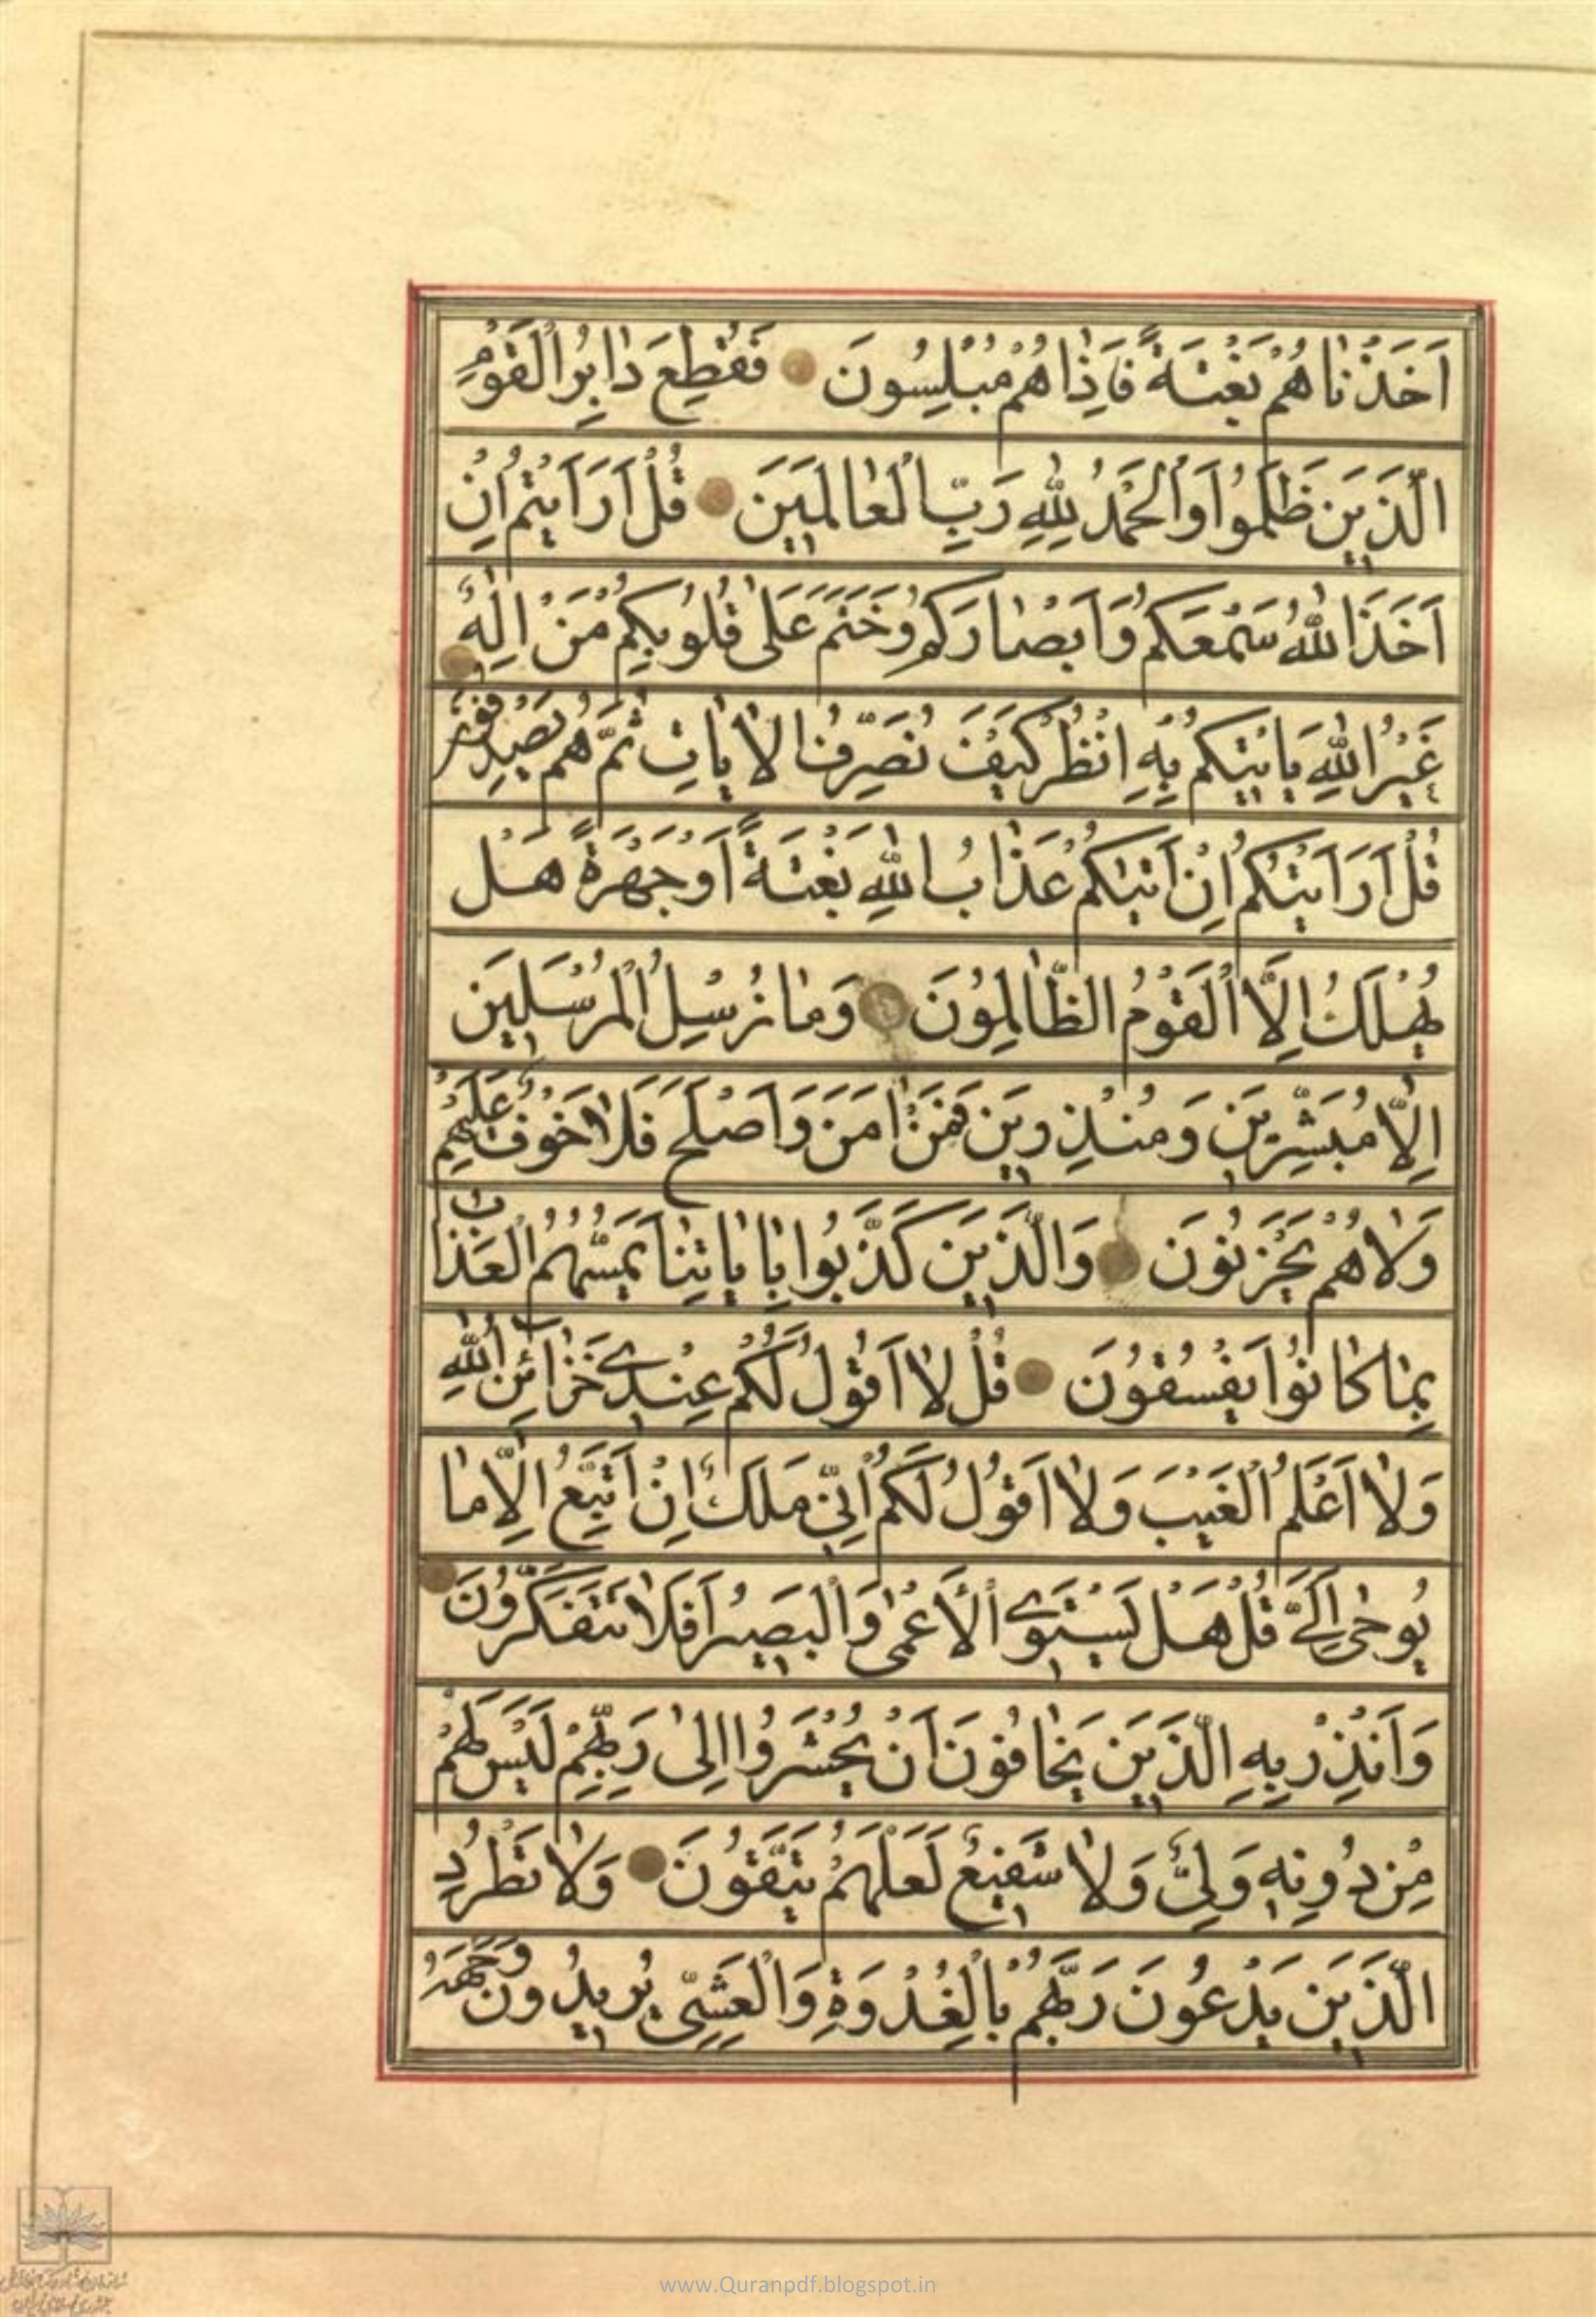 اَخَذْنٰاهُمْ بَغْتَةً فَاِذٰاهُمْ مُبْلِسُونَ فَقُطِعَ دٰابِرُ الْقَوْمِ
الَّذَيِنَ ظَلَمُوُا وَالْحَمْدُ لِلّٰهِ رَبِّ الْعٰالَمَيِنَ قُلْ اَرَاَيْتُمْ اِنْ
اَخَذَ اللّٰهُ سَمْعَكُمْ وَاَبْصٰارَكُمْ وَخَتَمَ عَلىٰ قُلُوُبِكُمْ مَنْ اِلٰهٌ
غَيْرُ اللّٰهِ يَاْتيِكُمْ بِهِ اُنْظُرْ كَيْفَ نُصَرِّفُ الْاٰيٰاتِ ثُمَّ هُمْ يَصْدِفُونَ
قُلْ اَرَاَيْتَكُمْ اِنْ اَتٰيكُمْ عَذٰابُ اللّٰهِ بَغْتَةً اَوْ جَهْرَةً هَلْ
يُهْلَكُ اِلَّا الْقَوْمُ الظّٰالِمُوُنَ وَمٰا نُرْسِلُ الْمُرْسَليِنَ
اِلّٰا مُبَشِّريِنَ وَمُنْذِريِنَ فَمَنْ اٰمَنَ وَاَصْلَحَ فَلٰا خَوْفٌ عَلَيْهِمْ
وَلٰا هُمْ يَحْزَنُونَ وَالَّذَيِنَ كَذَّبُوا بِاٰيٰاتِنٰا يَمَسُّهُمُ الْعَذٰابُ
بِمٰا كٰانُوُا يَفْسُقُوُنَ قُلْ لٰا اَقُوُلُ لَكُمْ عِنْديِ خَزٰائِنُ اللّٰهِ
وَلٰا اَعْلَمُ الْغَيْبَ وَلٰا اَقُوُلُ لَكُمْ اِنّيِ مَلَكٌ اِنْ اَتَّبِعُ اِلّٰا مٰا
يُوحىٰ اِلَىَّ قُلْ هَلْ يَسْتَوِى الْاَعْمىٰ وَالْبَصيِرُ اَفَلٰا تَتَفَكَّرُونَ
وَاَنْذِرْ بِهِ الَّذَيِنَ يَخٰافُوُنَ اَنْ يُحْشَرُوُا اِلىٰ رَبِّهِمْ لَيْسَ لَهُمْ
مِنْ دُونِهِ وَلِىٌّ وَلٰا شَفيِعٌ لَعَلَّهُمْ يَتَّقُوُنَ وَلٰا تَطْرُدِ
الَّذَيِنَ يَدْعُونَ رَبَّهُمْ بِالْغُدْوَةِ وَالْعَشِىِّ يُريِدُونَ وَجْهَهُ
www.Quranpdf.blogspot.in